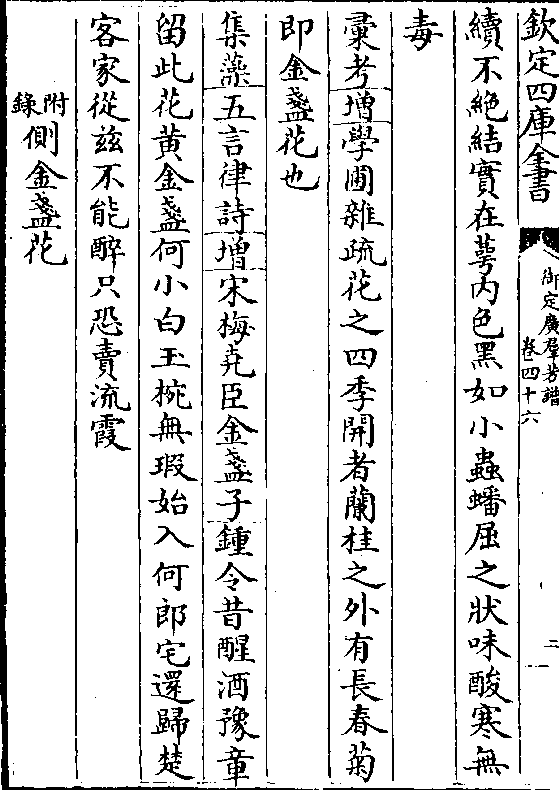 欽定四庫全書
御定廣羣芳譜
卷四十六
二
續不絶結實在萼内色黑如小蟲蟠屈之狀味酸寒無
毒
彚考增學圃雜疏花之四季開者蘭桂之外有長春菊
即金盞花也
集藻五言律詩增宋梅堯臣金盞子鍾令昔醒酒豫章
留此花黄金盞何小白玉椀無瑕始入何郎宅還歸楚
客家從兹不能醉只恐賣流霞
附錄側金盞花